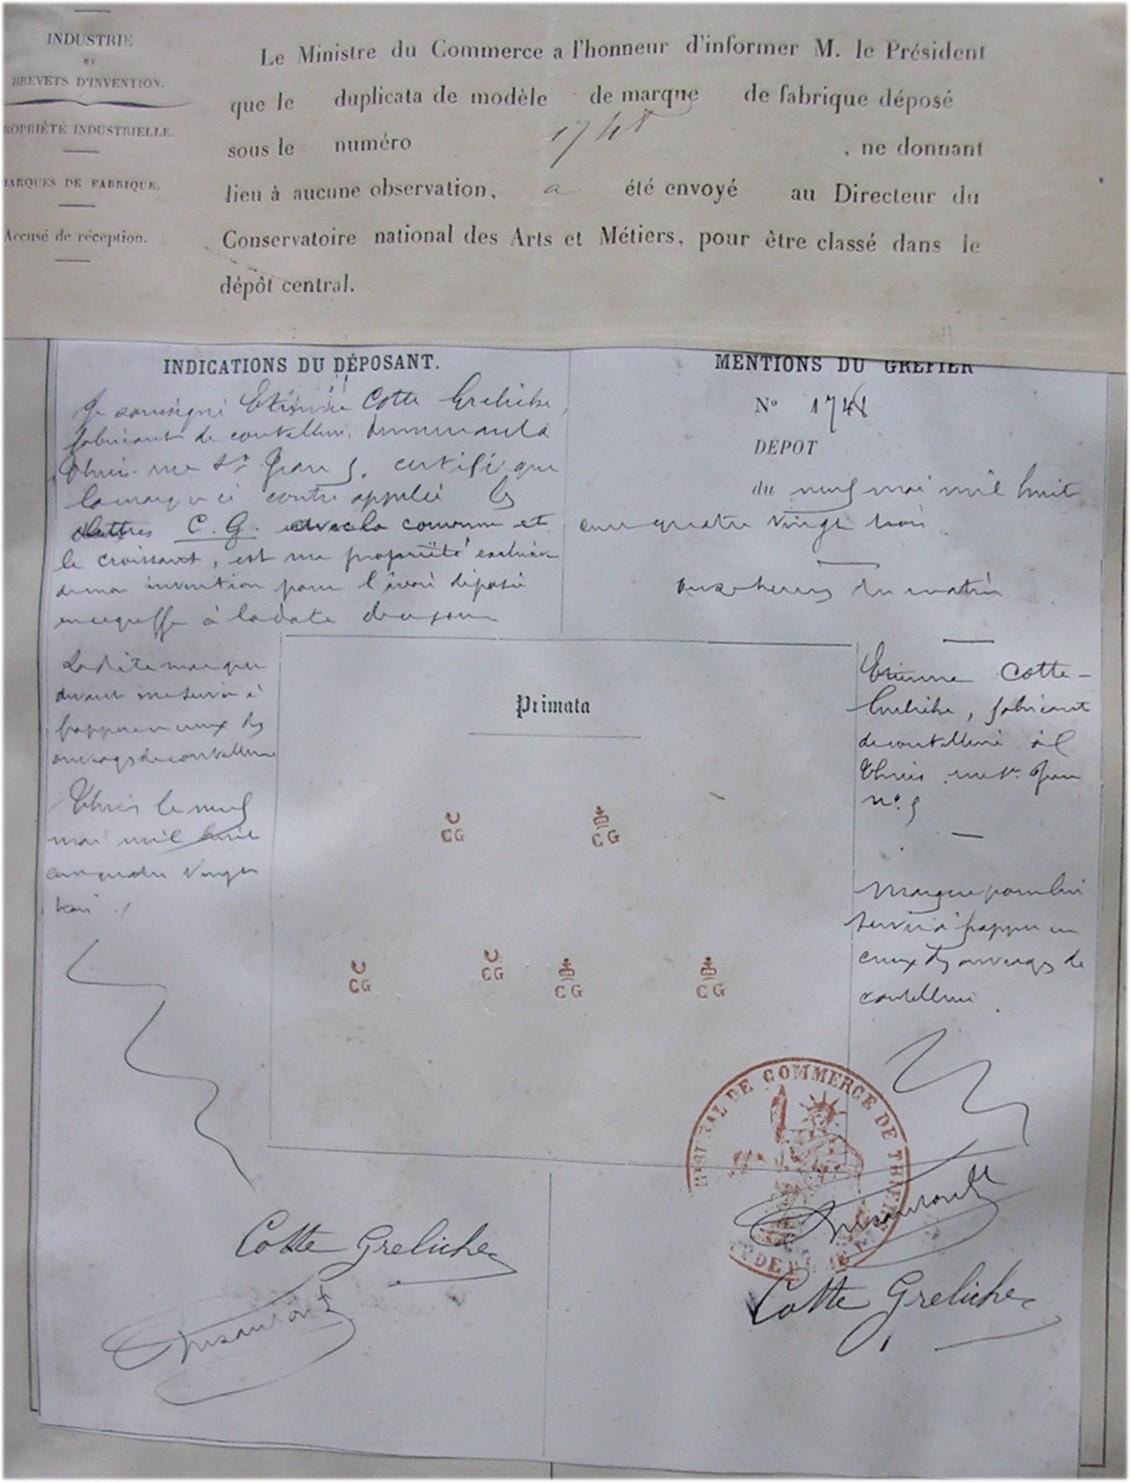 INDUSTRIE
ET
BREVETS D'INVENTION.
ROPRIÉTÉ INDUSTRIELLE.
MARQUES DE FABRIQUE.
Accusé de réception.
Le Ministre du Commerce a l'honneur d'informer M. le Président
que le duplicata de modèle de marque de fabrique déposé
sous le numéro 1748, ne donnant
lieu à aucune observation, a été envoyé au Directeur du
Conservatoire national des Arts et Métiers, pour être classé dans le
dépôt central.
INDICATIONS DU DÉPOSANT.
Je soussigné Etienne Cotte Greliche,
fabricant de coutellerie, demeurant à
Thiers rue St Jean 5, certifie que
la marque ci contre appelée les
lettres C. G. avec la couronne et
le croissant, est ma propriété exclusive
de mon invention pour l'avoir déposée
au greffe à la date de ce jour
La dite marque
devant me servir à
frapper en creux des
ouvrages de coutellerie
Thiers le neuf
mai mil huit
cent quatre vingt
trois
MENTIONS DU GREFIER
N° 1748
DÉPOT
du neuf mai mil huit
cent quatre vingt trois
onze heures du matin
Etienne Cotte-
Greliche, fabricant
de coutellerie à
Thiers rue St Jean
n° 5
Marque pour lui
servir à frapper en
creux des ouvrages de
coutellerie
Primata
CG
CG
CG
CG
CG
CG
TRIBUNAL DE COMMERCE DE THIERS
Cotte Greliche
Cotte Greliche